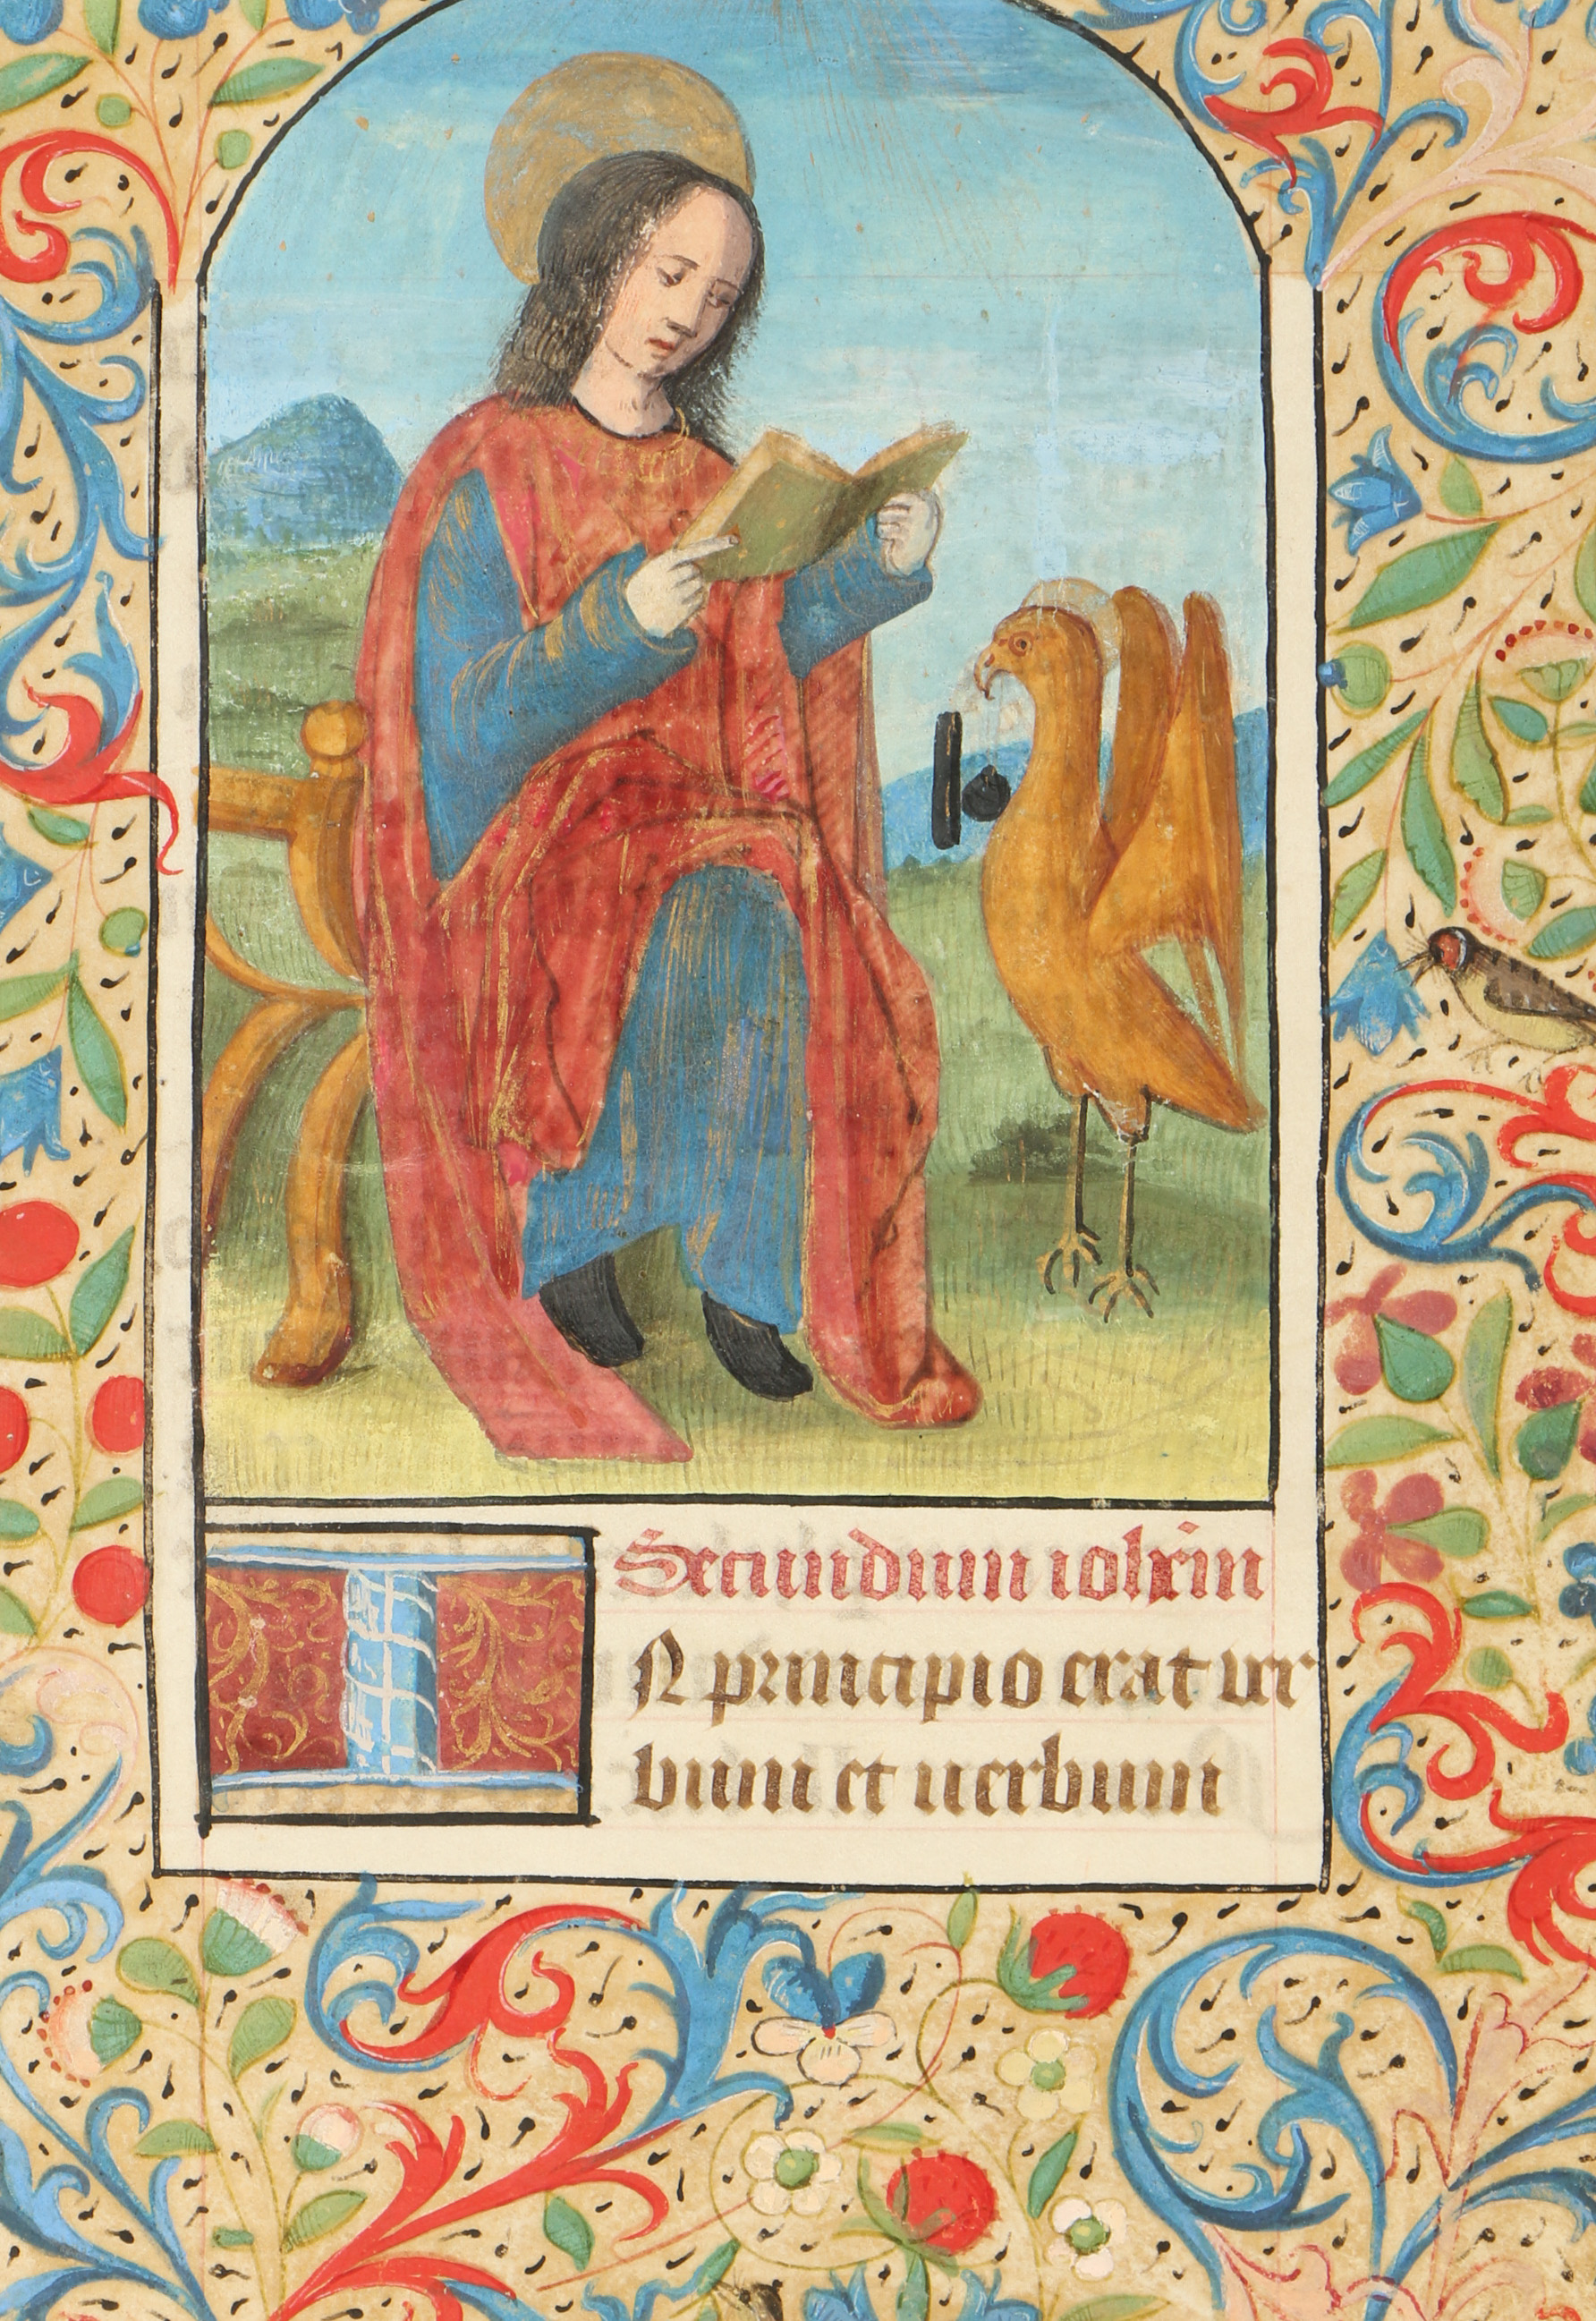 Secundum iohem
IN principio erat uer
bum et uerbum